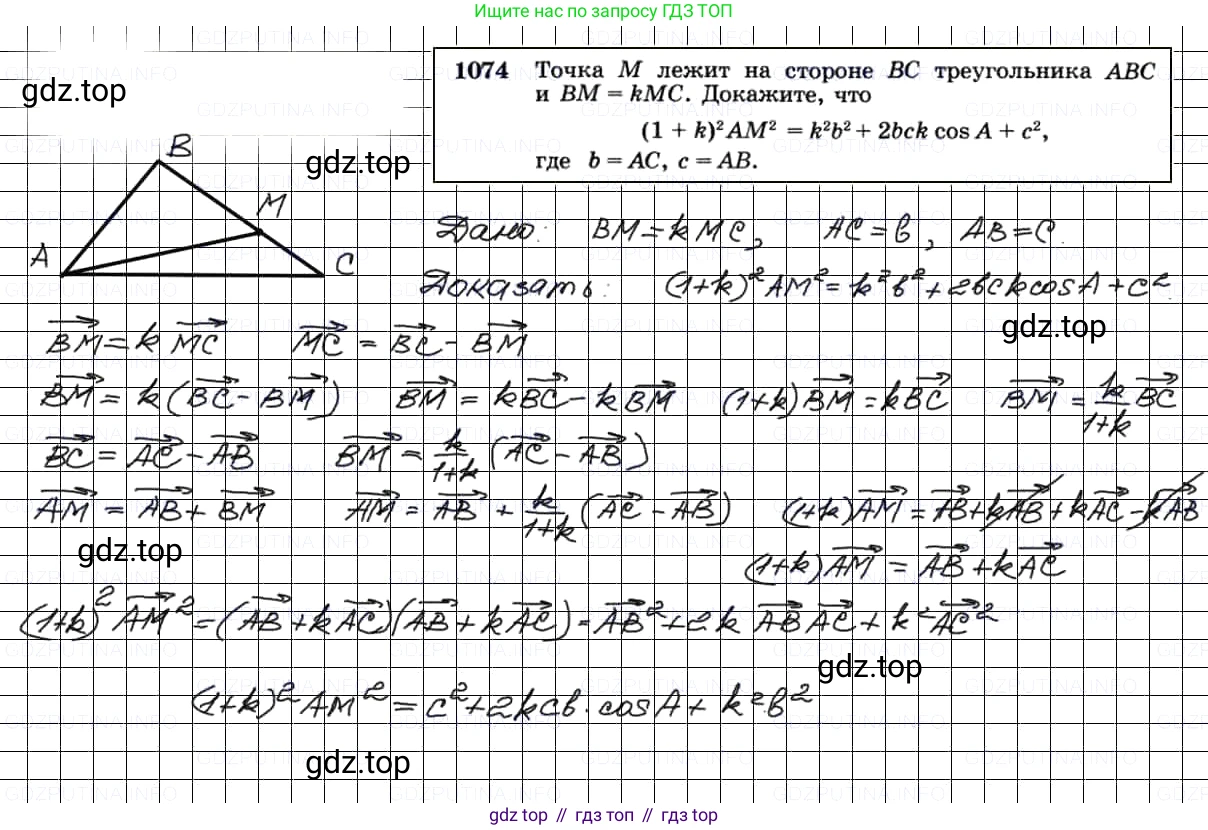 Ищите нас по запросу ГДЗ ТОП
1074 Точка M лежит на стороне BC треугольника ABC
и BM = kMC. Докажите, что
(1 + k)²AM² = k²b² + 2bck cos A + c²,
где b = AC, c = AB.
gdz.top
gdz.top
B
M
A
C
Дано: BM = k MC, AC = в, AB = C.
Доказать: (1+k)² AM² = k²в² + 2вckcosA + c²
gdz.top
BM→ = k MC→ MC→ = BC→ - BM→
BM→ = k(BC→ - BM→) BM→ = kBC→ - kBM→ (1+k)BM→ = kBC→ BM→ = k/(1+k) BC→
BC→ = AC→ - AB→ BM→ = k/(1+k) (AC→ - AB→)
AM→ = AB→ + BM→ AM→ = AB→ + k/(1+k) (AC→ - AB→) (1+k)AM→ = AB→ + kAB→ + kAC→ - kAB→
gdz.top
(1+k)AM→ = AB→ + kAC→
(1+k)² AM→² = (AB→ + kAC→)(AB→ + kAC→) = AB→² + 2k AB→ AC→ + k² AC→²
gdz.top
(1+k)² AM² = c² + 2kcв · cosA + k²·в²
gdz.top
gdz top // гдз топ // gdz top